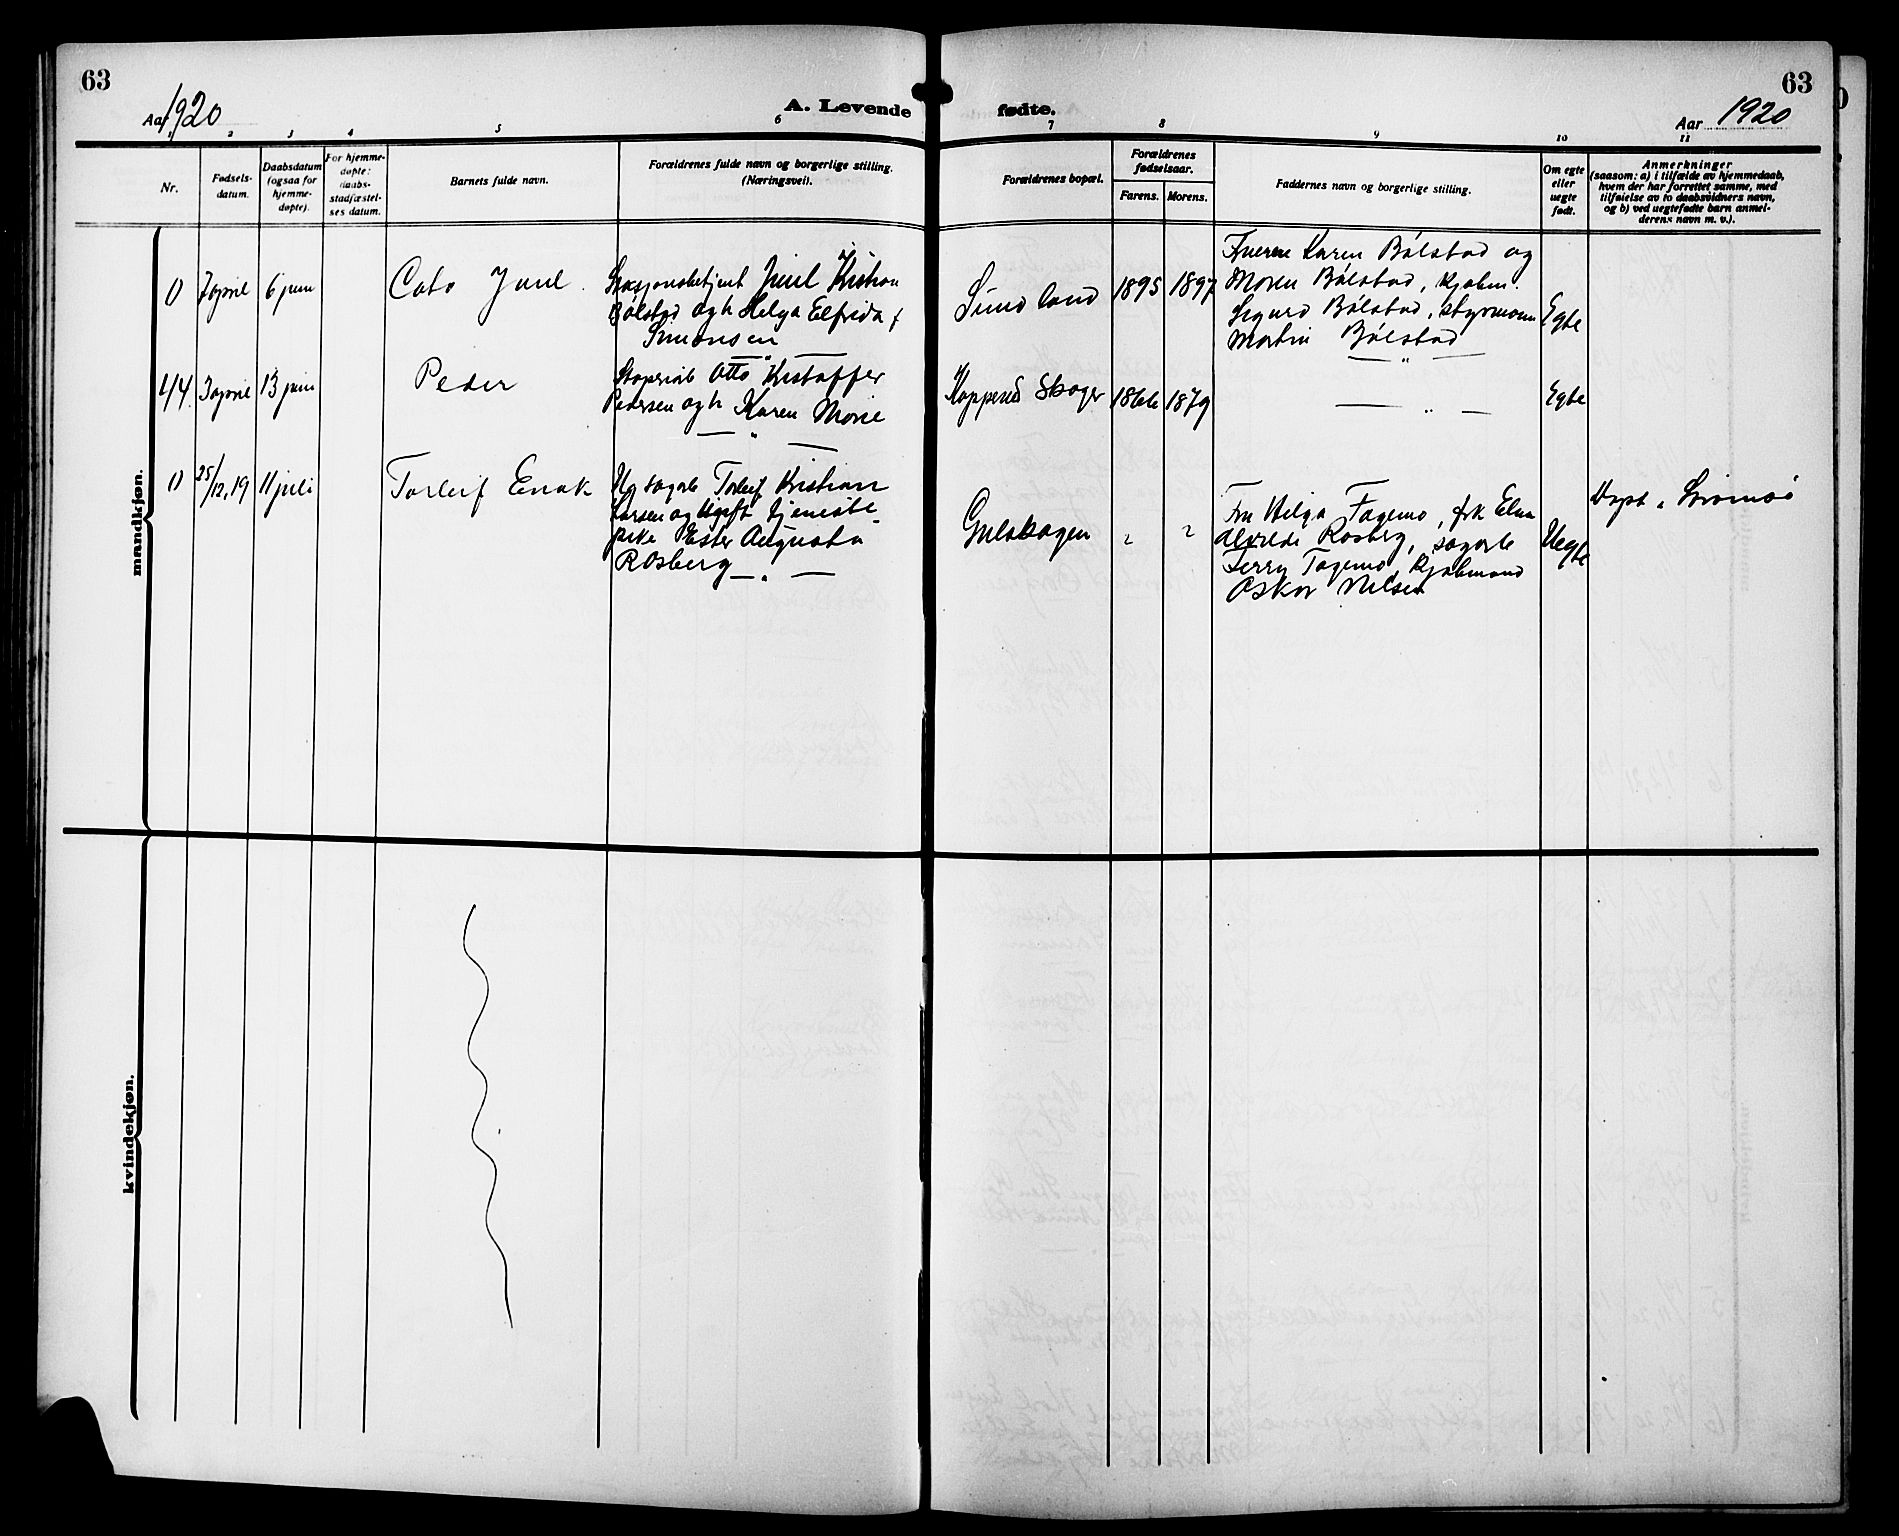 63
63
Aar 1920
A. Levende fødte.
Aar 1920
1 2 3 4 5 6 7 8 9 10 11
Nr.
Fødsels-
datum.
Daabsdatum
(ogsaa for
hjemme-
døpte).
For hjemme-
døpte:
daabs-
stadfæstel-
ses datum.
Barnets fulde navn.
Forældrenes fulde navn og borgerlige stilling.
(Næringsvei).
Forældrenes bopæl.
Forældrenes
fødselsaar.
Farens. Morens.
Faddernes navn og borgerlige stilling.
Om egte
eller
uegte
født.
Anmerkninger
(saasom: a) i tilfælde av hjemmedaab,
hvem der har forrettet samme, med
tilføielse av to daabsvidners navn,
og b) ved uegtefødte barn anmel-
derens navn m. v.).
mandkjøn.
0 7 april 6 juni
Cato Juul
Stasjonsbetjent Juul Kristian
Bølstad og h Helga Elfrida f
Simonsen
Sundland
1895 1897
Fruene Karen Bølstad og
Maren Bølstad, kjøbm.
Sigurd Bølstad, styrmann
Martin Bølstad
Egte
44 3 april 13 juni
Peder
Otto Kristoffer
Pedersen og h Karen Marie
— " —
Skoger
1866 1879
— " —
Egte
0 25/12.19 11 juli
Torleif Enok
Ug sagarb Torleif Kristian
Larsen og Ugift tjeneste-
pike Ester Augusta
Rosberg — " —
Gulskogen
" "
Fru Helga Fagemo, frk Elna
Alvilde Rosberg, sagarb
Fagemo, Kjøbmand
Oskar Nilsen
Uegte
Døpt i Strømsø
kvindekjøn.